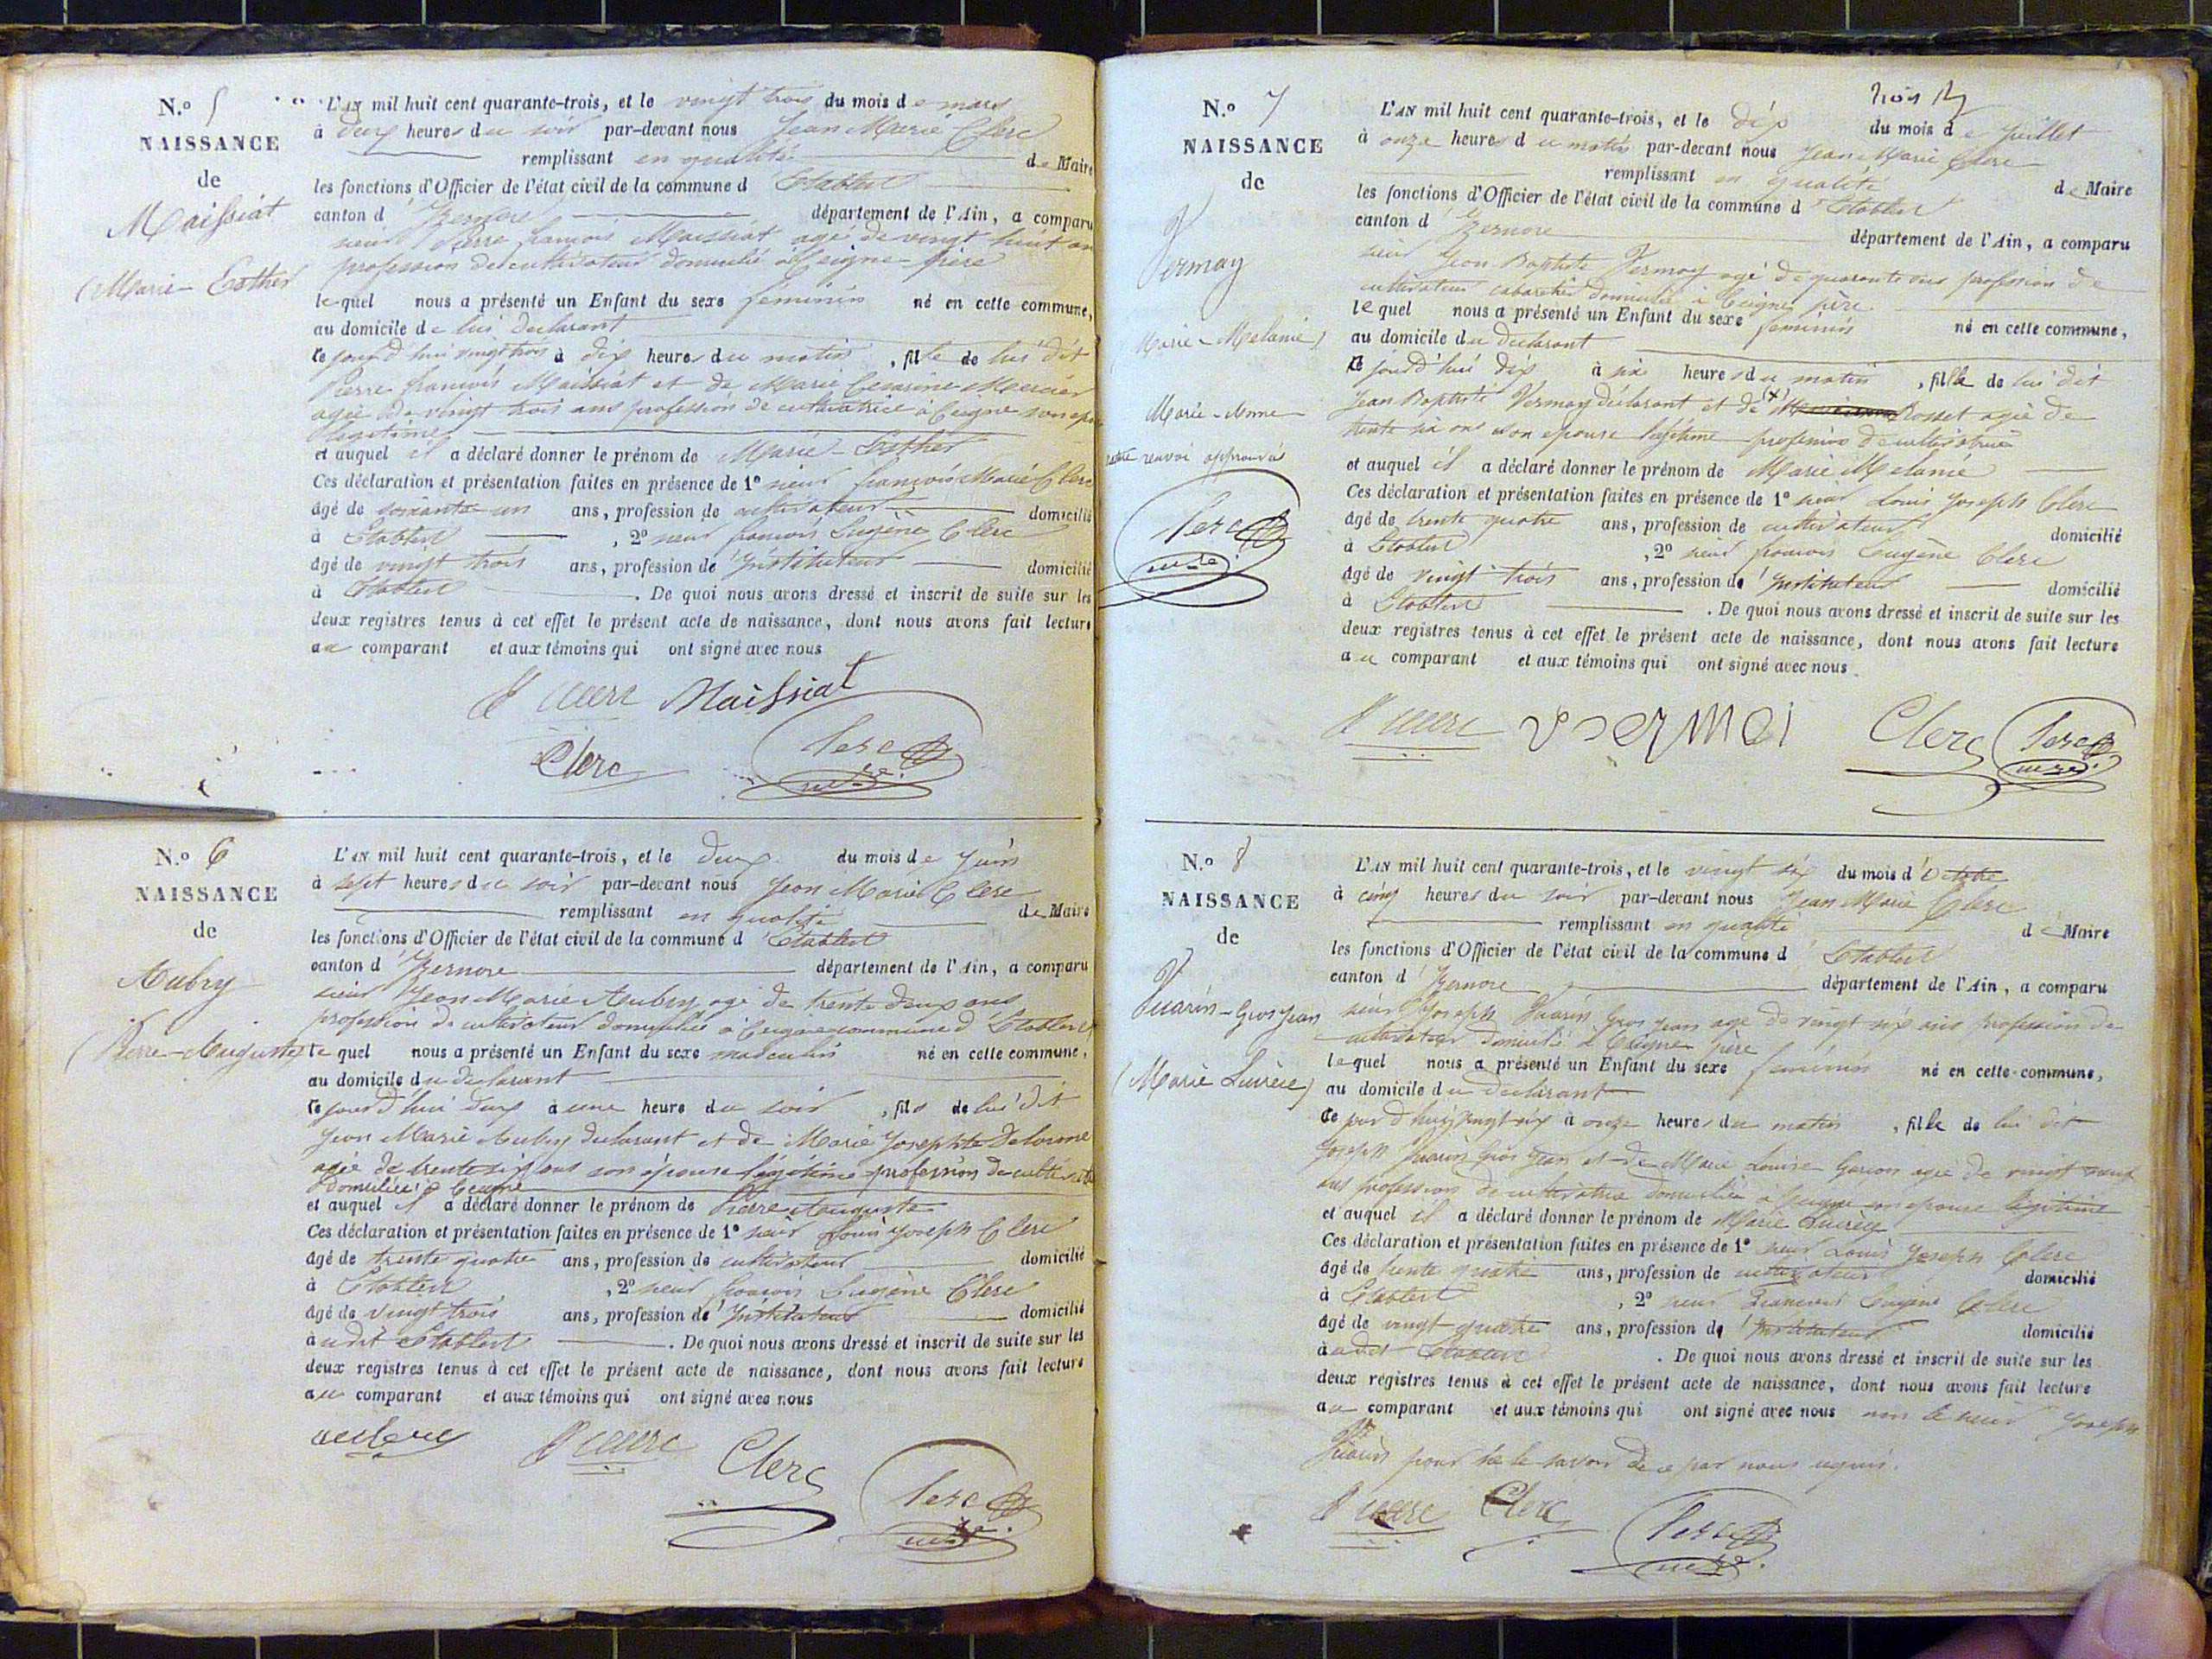 N.º 5
NAISSANCE
de
Maissiat
(Marie-Esther
L'AN mil huit cent quarante-trois, et le vingt trois du mois de mars
à deux heures du soir par-devant nous Jean Marie Clerc
remplissant en qualité de Maire
les fonctions d'Officier de l'état civil de la commune d'Etables
canton d'Izernore département de l'Ain, a comparu
sieur Pierre françois Maissiat agé de vingt huit ans
profession de cultivateur domicilié à Ceigne père
lequel nous a présenté un Enfant du sexe féminin né en cette commune,
au domicile de lui declarant
ce jourd'hui vingt trois à dix heures du matin, fille de lui dit
Pierre françois Maissiat et de Marie Césarine Mercier
agée de vingt trois ans profession de cultivatrice à Ceigne son
légitime
et auquel il a déclaré donner le prénom de Marie-Esther
Ces déclaration et présentation faites en présence de 1º sieur françois Marie Clerc
âgé de soixante un ans, profession de cultivateur domicilié
à Etables, 2º sieur françois Eugène Clerc
âgé de vingt trois ans, profession d'Instituteur domicilié
à Etables. De quoi nous avons dressé et inscrit de suite sur les
deux registres tenus à cet effet le présent acte de naissance, dont nous avons fait lecture
au comparant et aux témoins qui ont signé avec nous
Maissiat
Clerc Clerc
N.º 6
NAISSANCE
de
Aubry
(Pierre-Auguste)
L'AN mil huit cent quarante-trois, et le deux du mois de Juin
à sept heures du soir par-devant nous Jean Marie Clerc
remplissant en qualité de Maire
les fonctions d'Officier de l'état civil de la commune d'Etables
canton d'Izernore département de l'Ain, a comparu
sieur Jean Marie Aubry agé de trente deux ans
profession de cultivateur domicilié à Ceigne commune d'Etables
lequel nous a présenté un Enfant du sexe masculin né en cette commune,
au domicile du declarant
ce jourd'hui deux à une heure du soir, fils de lui dit
Jean Marie Aubry declarant et de Marie Josephte Delorme
agée de trente six ans son épouse légitime profession de
domiciliée à Ceigne
et auquel il a déclaré donner le prénom de Pierre Auguste
Ces déclaration et présentation faites en présence de 1º sieur Louis Joseph Clerc
âgé de trente quatre ans, profession de cultivateur domicilié
à Etables, 2º sieur françois Eugène Clerc
âgé de vingt trois ans, profession d'Instituteur domicilié
audit Etables. De quoi nous avons dressé et inscrit de suite sur les
deux registres tenus à cet effet le présent acte de naissance, dont nous avons fait lecture
au comparant et aux témoins qui ont signé avec nous
Clerc Clerc
N.º 7
NAISSANCE
de
Vermay
Marie-Melanie)
Marie-Anne
renvoi approuvé
Clerc
L'AN mil huit cent quarante-trois, et le dix du mois de Juillet
à onze heures du matin par-devant nous Jean Marie Clerc
remplissant en qualité de Maire
les fonctions d'Officier de l'état civil de la commune d'Etables
canton d'Izernore département de l'Ain, a comparu
sieur Jean Baptiste Vermay agé de quarante ans profession de
cultivateur cabaretier domicilié à Ceigne père
lequel nous a présenté un Enfant du sexe féminin né en cette commune,
au domicile du declarant
ce jourd'hui dix à six heures du matin, fille de lui dit
Jean Baptiste Vermay déclarant et de (x) Bosset agée de
trente six ans son epouse légitime profession de cultivatrice
et auquel il a déclaré donner le prénom de Marie Melanie
Ces déclaration et présentation faites en présence de 1º sieur Louis Joseph Clerc
âgé de trente quatre ans, profession de cultivateur domicilié
à Etables, 2º sieur françois Eugène Clerc
âgé de vingt trois ans, profession d'Instituteur domicilié
à Etables. De quoi nous avons dressé et inscrit de suite sur les
deux registres tenus à cet effet le présent acte de naissance, dont nous avons fait lecture
au comparant et aux témoins qui ont signé avec nous
Clerc Clerc
N.º 8
NAISSANCE
de
Juarin-Gros Jean
(Marie Lucrèce)
L'AN mil huit cent quarante-trois, et le vingt six du mois d'Octobre
à cinq heures du soir par-devant nous Jean Marie Clerc
remplissant en qualité de Maire
les fonctions d'Officier de l'état civil de la commune d'Etables
canton d'Izernore département de l'Ain, a comparu
sieur Joseph Juarin Gros Jean agé de vingt six ans profession de
cultivateur domicilié à Ceigne père
lequel nous a présenté un Enfant du sexe féminin né en cette commune,
au domicile du declarant
ce jour d'huy vingt six à onze heures du matin, fille de lui dit
Joseph Juarin Gros Jean et de Marie Louise agée de vingt neuf
ans profession de cultivatrice domiciliée à Ceigne son epouse légitime
et auquel il a déclaré donner le prénom de Marie Lucrèce
Ces déclaration et présentation faites en présence de 1º sieur Louis Joseph Clerc
âgé de trente quatre ans, profession de cultivateur domicilié
à Etables, 2º sieur françois Eugène Clerc
âgé de vingt quatre ans, profession d'Instituteur domicilié
audit Etables. De quoi nous avons dressé et inscrit de suite sur les
deux registres tenus à cet effet le présent acte de naissance, dont nous avons fait lecture
au comparant et aux témoins qui ont signé avec nous non le sieur Joseph
Juarin pour ne le savoir de ce par nous requis.
Clerc Clerc